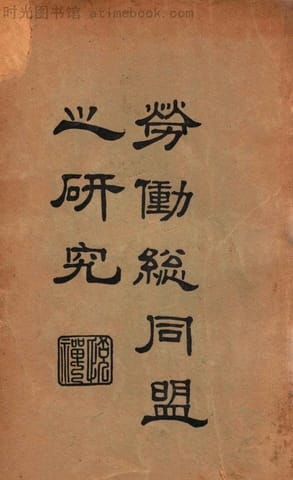 时光图书馆 atimebook.com
勞働総同盟
之研究